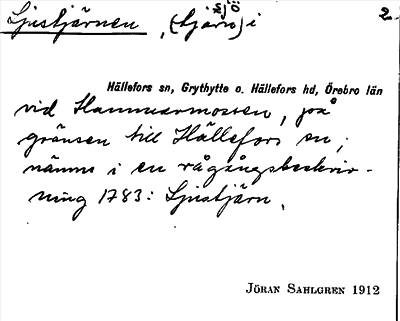 Ljustjärnen, (tjärn) sjö i 2
Hällefors sn, Grythytte o. Hällefors hd, Örebro län
vid Hammarmossen, på
gränsen till Hällefors sn;
nämns i en rågångsbeskriv-
ning 1783: Ljustjärn.
JÖRAN SAHLGREN 1912